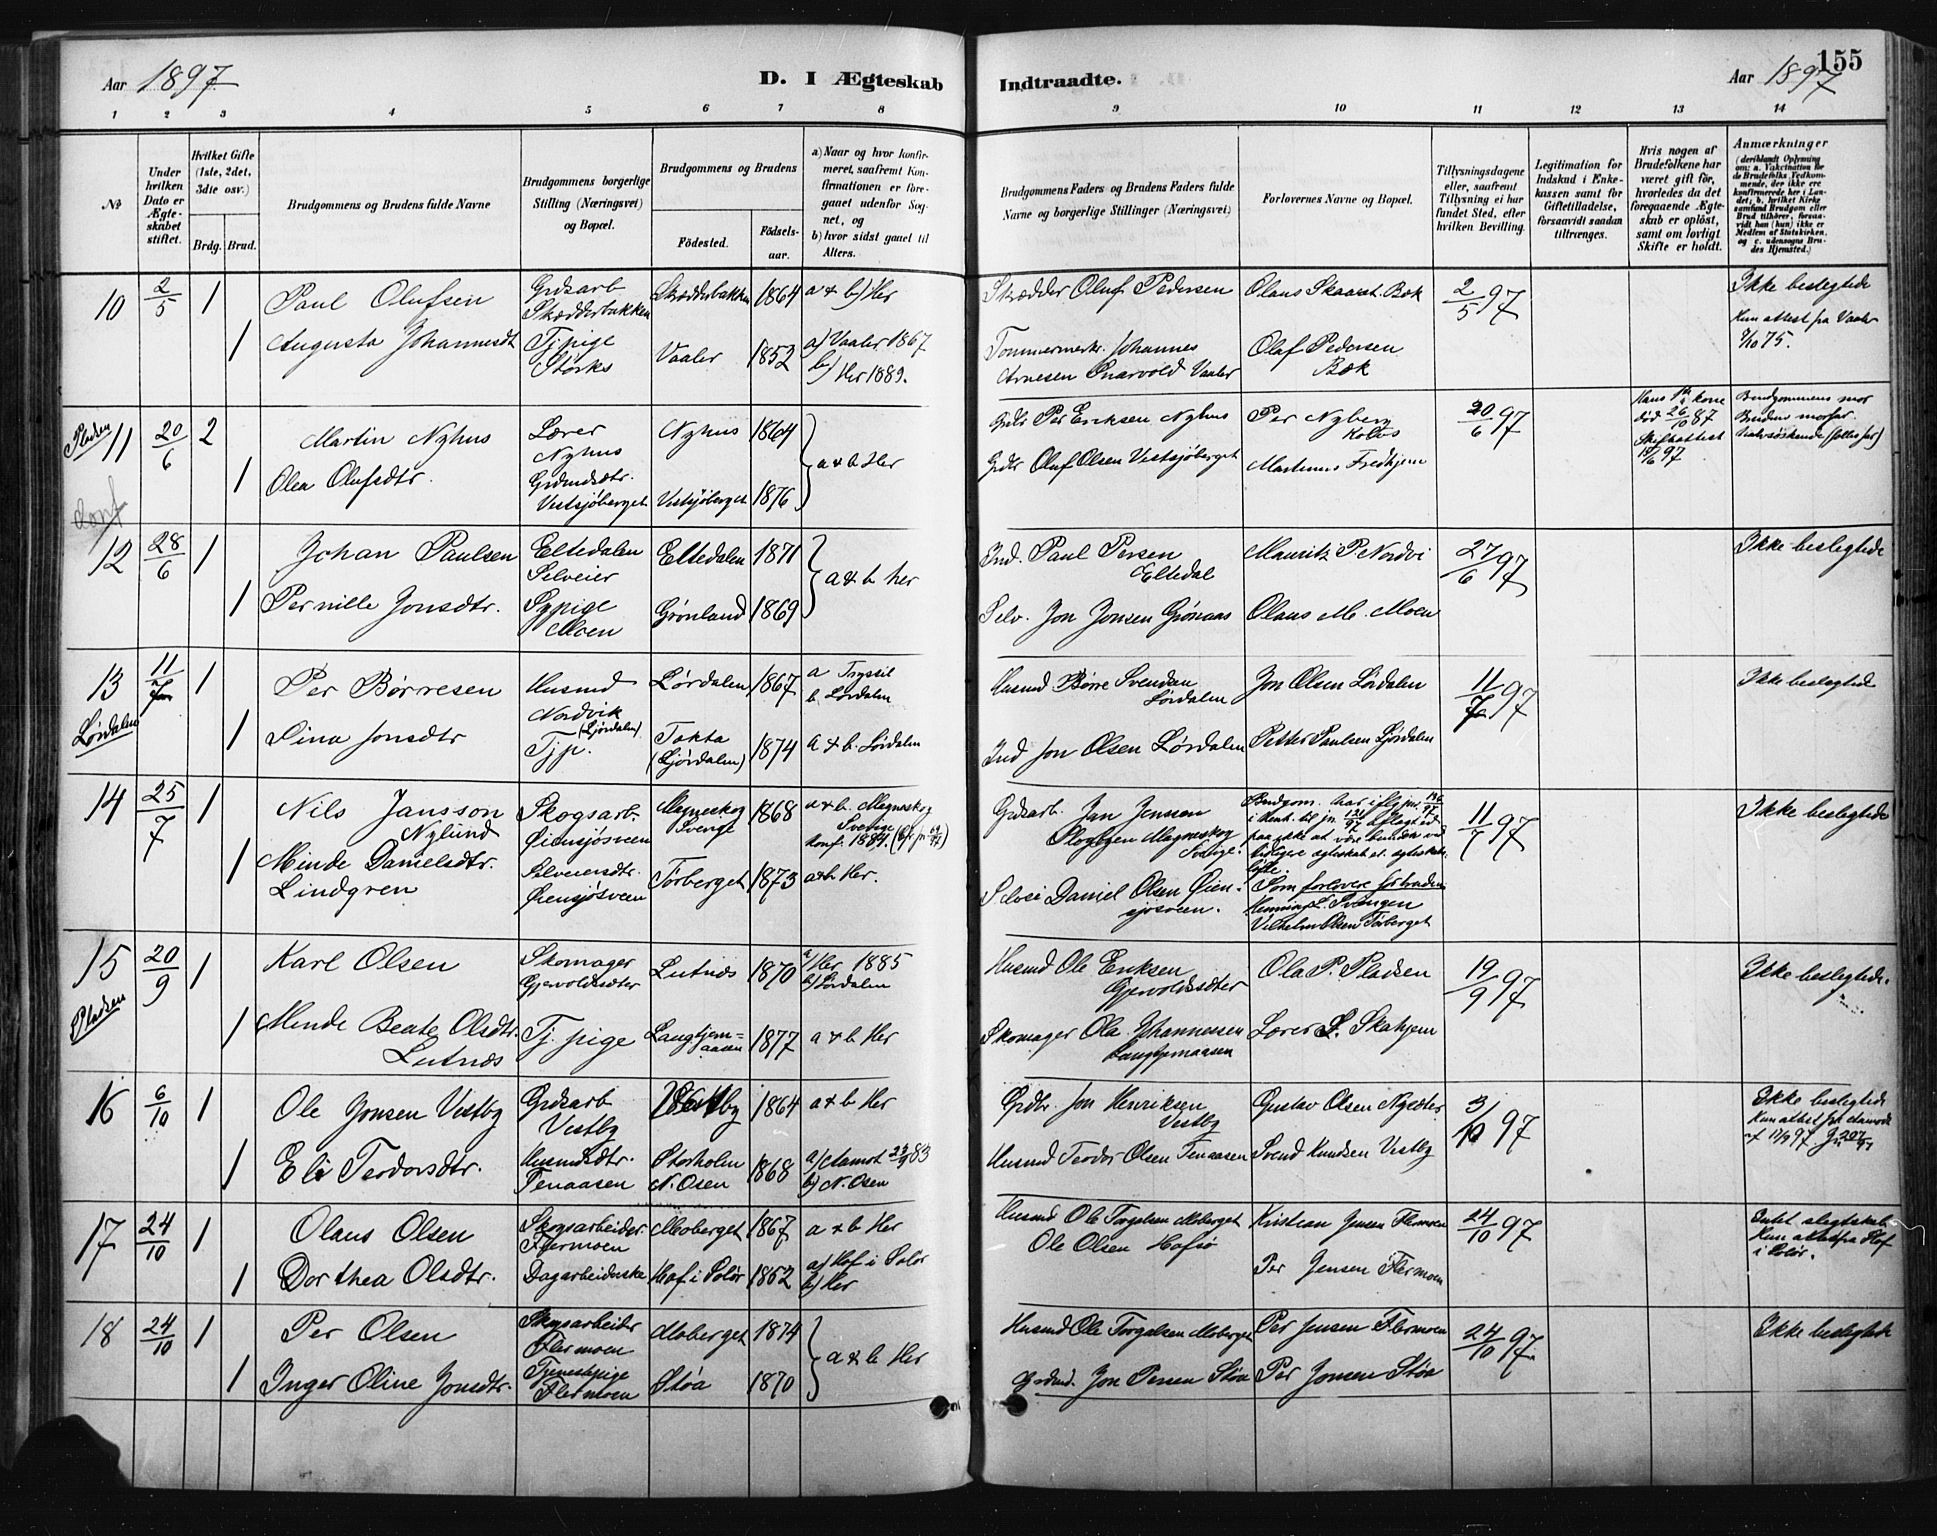 155
Aar 1897
D. I Ægteskab
Indtraadte.
Aar 1897
1 2 3 4 5 6 7 8 9 10 11 12 13 14
No
Under hvilken Dato er Ægteskabet stiftet.
Hvilket Gifte (1ste, 2det, 3dte osv.)
Brdg. Brud.
Brudgommens og Brudens fulde Navne
Brudgommens borgerlige Stilling (Næringsvei) og Bopæl.
Brudgommens og Brudens
Fødested.
Fødselsaar.
a) Naar og hvor konfirmeret, saafremt Konfirmationen er foregaaet udenfor Sognet, og
b) hvor sidst gaaet til Alters.
Brudgommens Faders og Brudens Faders fulde Navne og borgerlige Stillinger (Næringsvei)
Forlovernes Navne og Bopæl.
Tillysningsdagene eller, saafremt Tillysning ei har fundet Sted, efter hvilken Bevilling.
Legitimation for Indskud i Enkekassen samt for Giftetilladelse, forsaavidt saadan tiltrænges.
Hvis nogen af Brudefolkene har været gift før, hvorledes da det foregaaende Ægteskab er opløst, samt om lovligt Skifte er holdt.
Anmærkninger
10 2/5 1 Paul Olufsen Grdsarb Skædderbakken Skædderbakken 1864 a & b) Her
Skædder Oluf Pedersen Olaus Skaaret. Bæk 2/5 97 Ikke beslegtede
1 Augusta Johannesdt Tjpige Størks Vaaler 1852 a) Vaaler 1867
b) Her 1889.
Tømmermerk. Johannes Arnesen Snarvold Vaaler Olaf Pedersen Bæk
Kun attest fra Vaaler 75.
Pladsen 11 20/6 2 Martin Nyhus Lærer Nyhus Nyhus 1864 a & b Her
Grdbr Per Eriksen Nyhus Per Nyberg Kolos 20/6 97
Hans 1ste kone død 26/10 87 Skifteattest 19/6 97
Brudgommens mor Brudens morfar halvsøskende (fælles far)
1 Olea Olufsdtr. Grdmdsdtr. Vestsjøberget Vestsjøberget 1876
Grdbr Oluf Olsen Vestsjøberget Martinus Fredhjem
12 28/6 1 Johan Paulsen Eltedalen Selveier Eltedalen 1871 a & b her
Ind. Paul Persen Eltedal Mauritz P. Nordvi 27/6 97 Ikke beslegtede
1 Pernille Jonsdtr. Sypige Moen Grønland 1869
Selv. Jon Jonsen Grønaas Olaus M. Moen
13 Lørdalen 11/7 1 Per Børresen Husmd Nordvik (Ljørdalen) Lørdalen 1867 a Trysil
b Lørdalen
Husmd Børre Svendsen Lørdalen Jon Olsen Lørdalen 11/7 97 Ikke beslegtede
1 Dina Jonsdtr Tjp. Takta (Ljørdalen) 1874 a & b. Lørdalen
Ind Jon Olsen Lørdalen Petter Paulsen Ljørdalen
14 25/7 1 Nils Jansson Nylund Skogsarb. Øiensjøsveen Magneskog Sverige 1868 a & b. Magneskog Sverige
Konf. 1884.
Grdsarb. Jan Jensen Magneskog Sverige. 11/7 97 Ikke beslegtede
1 Minde Danielsdtr. Lindgren Selveiersdtr. Øiensjøsveen Tørberget 1873 a & b Her.
Selvei Daniel Olsen Øiensjøsveen.
Som forlovere for bruden
Henning L. Svingen
Vilhelm Olsen Tørberget
15 Pladsen 20/9 1 Karl Olsen Skomager Gjervoldsæter Lutnæs 1870 a) Her 1885
b) Lørdalen
Husmd Ole Eriksen Gjervoldssæter Ola P. Pladsen 19/9 97 Ikke beslegtede.
1 Minde Beate Olsdtr. Lutnæs Tj. pige Langtjernaasen 1877 a & b Her
Skomager Ola Johannessen Langtjernaasen Lærer L. Skahjem
16 6/10 1 Ole Jonsen Vestby Grdsarb Vestby Vestby 1864 a & b Her
Grdbr. Jon Henriksen Vestby Gustav Olsen Nysæter 3/10 97 Ikke beslegtede
Kun attest fra Aamodt af 17/9 97. Jn 207/97
1 Eli Teodorsdtr. Husmdsdtr. Tenaasen Storholm N. Osen 1868 a) Aamot 23/9 83
b) N. Osen
Husmd Teodor Olsen Tenaasen Svend Knudsen Vestby
17 24/10 1 Olaus Olsen Skogsarbeider Flermoen Moberget 1867 a & b Her
Husmd Ole Torgalsen Moberget Kristian Jensen Flermoen 24/10 97 Intet slegtskab
Kun attest fra Hof i Solør.
1 Dorthea Olsdtr. Dagarbeiderske Hof i Solør 1862 a) Hof i Solør
b) Her
Ole Olsen Hofsø Per Jensen Flermoen
18 24/10 1 Per Olsen Skogsarbeider Flermoen Moberget 1874 a & b Her
Husmd Ole Torgalsen Moberget Per Jensen Flermoen 24/10 97. Ikke beslegtede
1 Inger Oline Jonsdtr. Tjenestepige Flermoen Støa 1870
Grdmd. Jon Persen Støa Per Jonsen Støa